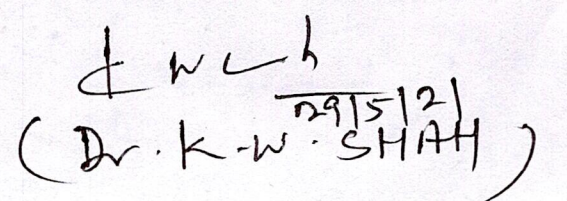 29/5/21
(Dr. K.W. SHAH)